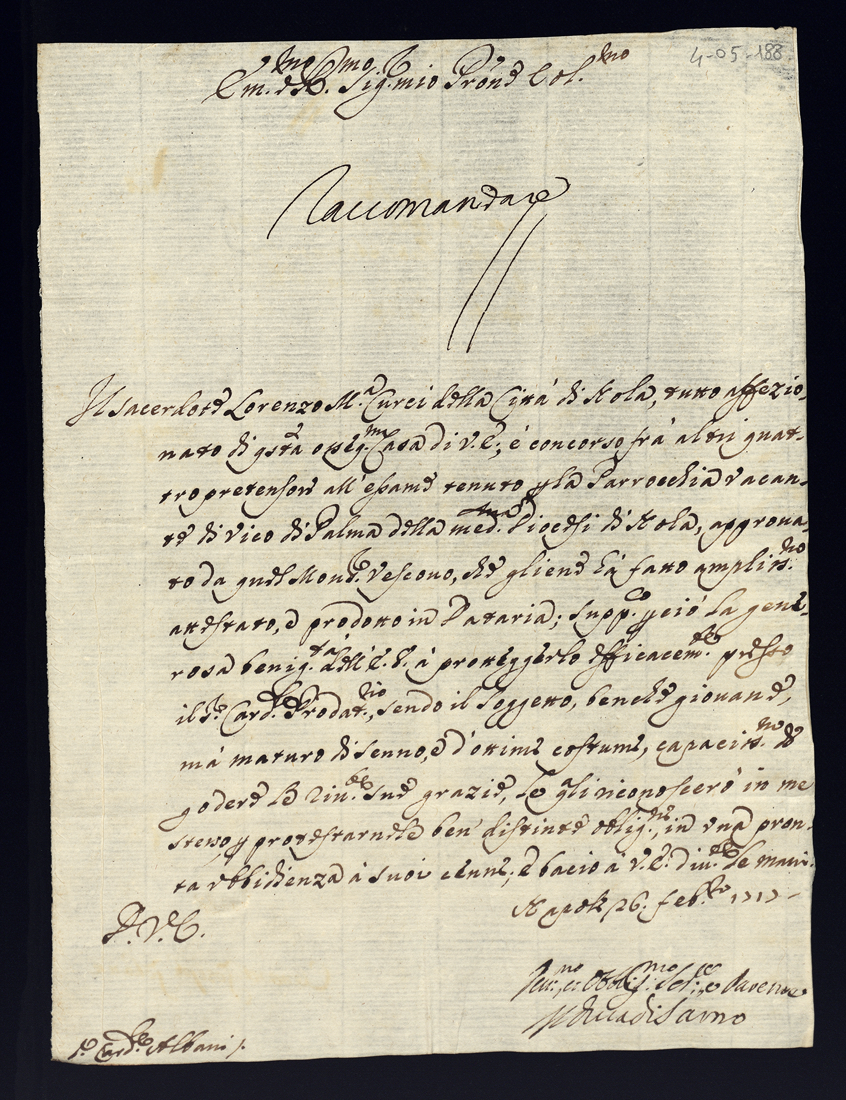 4-05-188
Em.mo e R.mo Sig.r mio P̃rone Col.mo
Raccomandare
Il sacerdote Lorenzo M.a Curci della Città di Nola, tutto affezio,
nato di q̃sta osseq.ma Casa di V.E., è concorso frà altri quat-
tro pretensori all'esame tenuto p la Parrocchia vacan-
te di Vico di Palma della med.ma Diocesi di Nola, approva,
to da quel Mons.r Vescovo, che gliene hà fatto ampliss.mo
attestato, e prodotto in Dataria; supp.co p ciò la gene-
rosa benig.tà dell'E.V. à proteggerlo efficacem.te presso
il S.r Card.le Prodat.rio, sendo il soggetto, benche giovane,
mà maturo di senno, e d'ottimi costumi, capaciss.mo di
godere le riv.te sue grazie, Le gli riconoscerò in me
stesso p protestarnele ben distinte oblig.ni, in una pron-
ta ubbidienza à suoi cenni, e bacio à V.E. div.te le mani.
Napoli 26. feb.ro 1717
D.V.E.
Div.mo, et Obblig.mo Ser.re e Parente
Il Duca di Sarno
S.r Card.le Albani